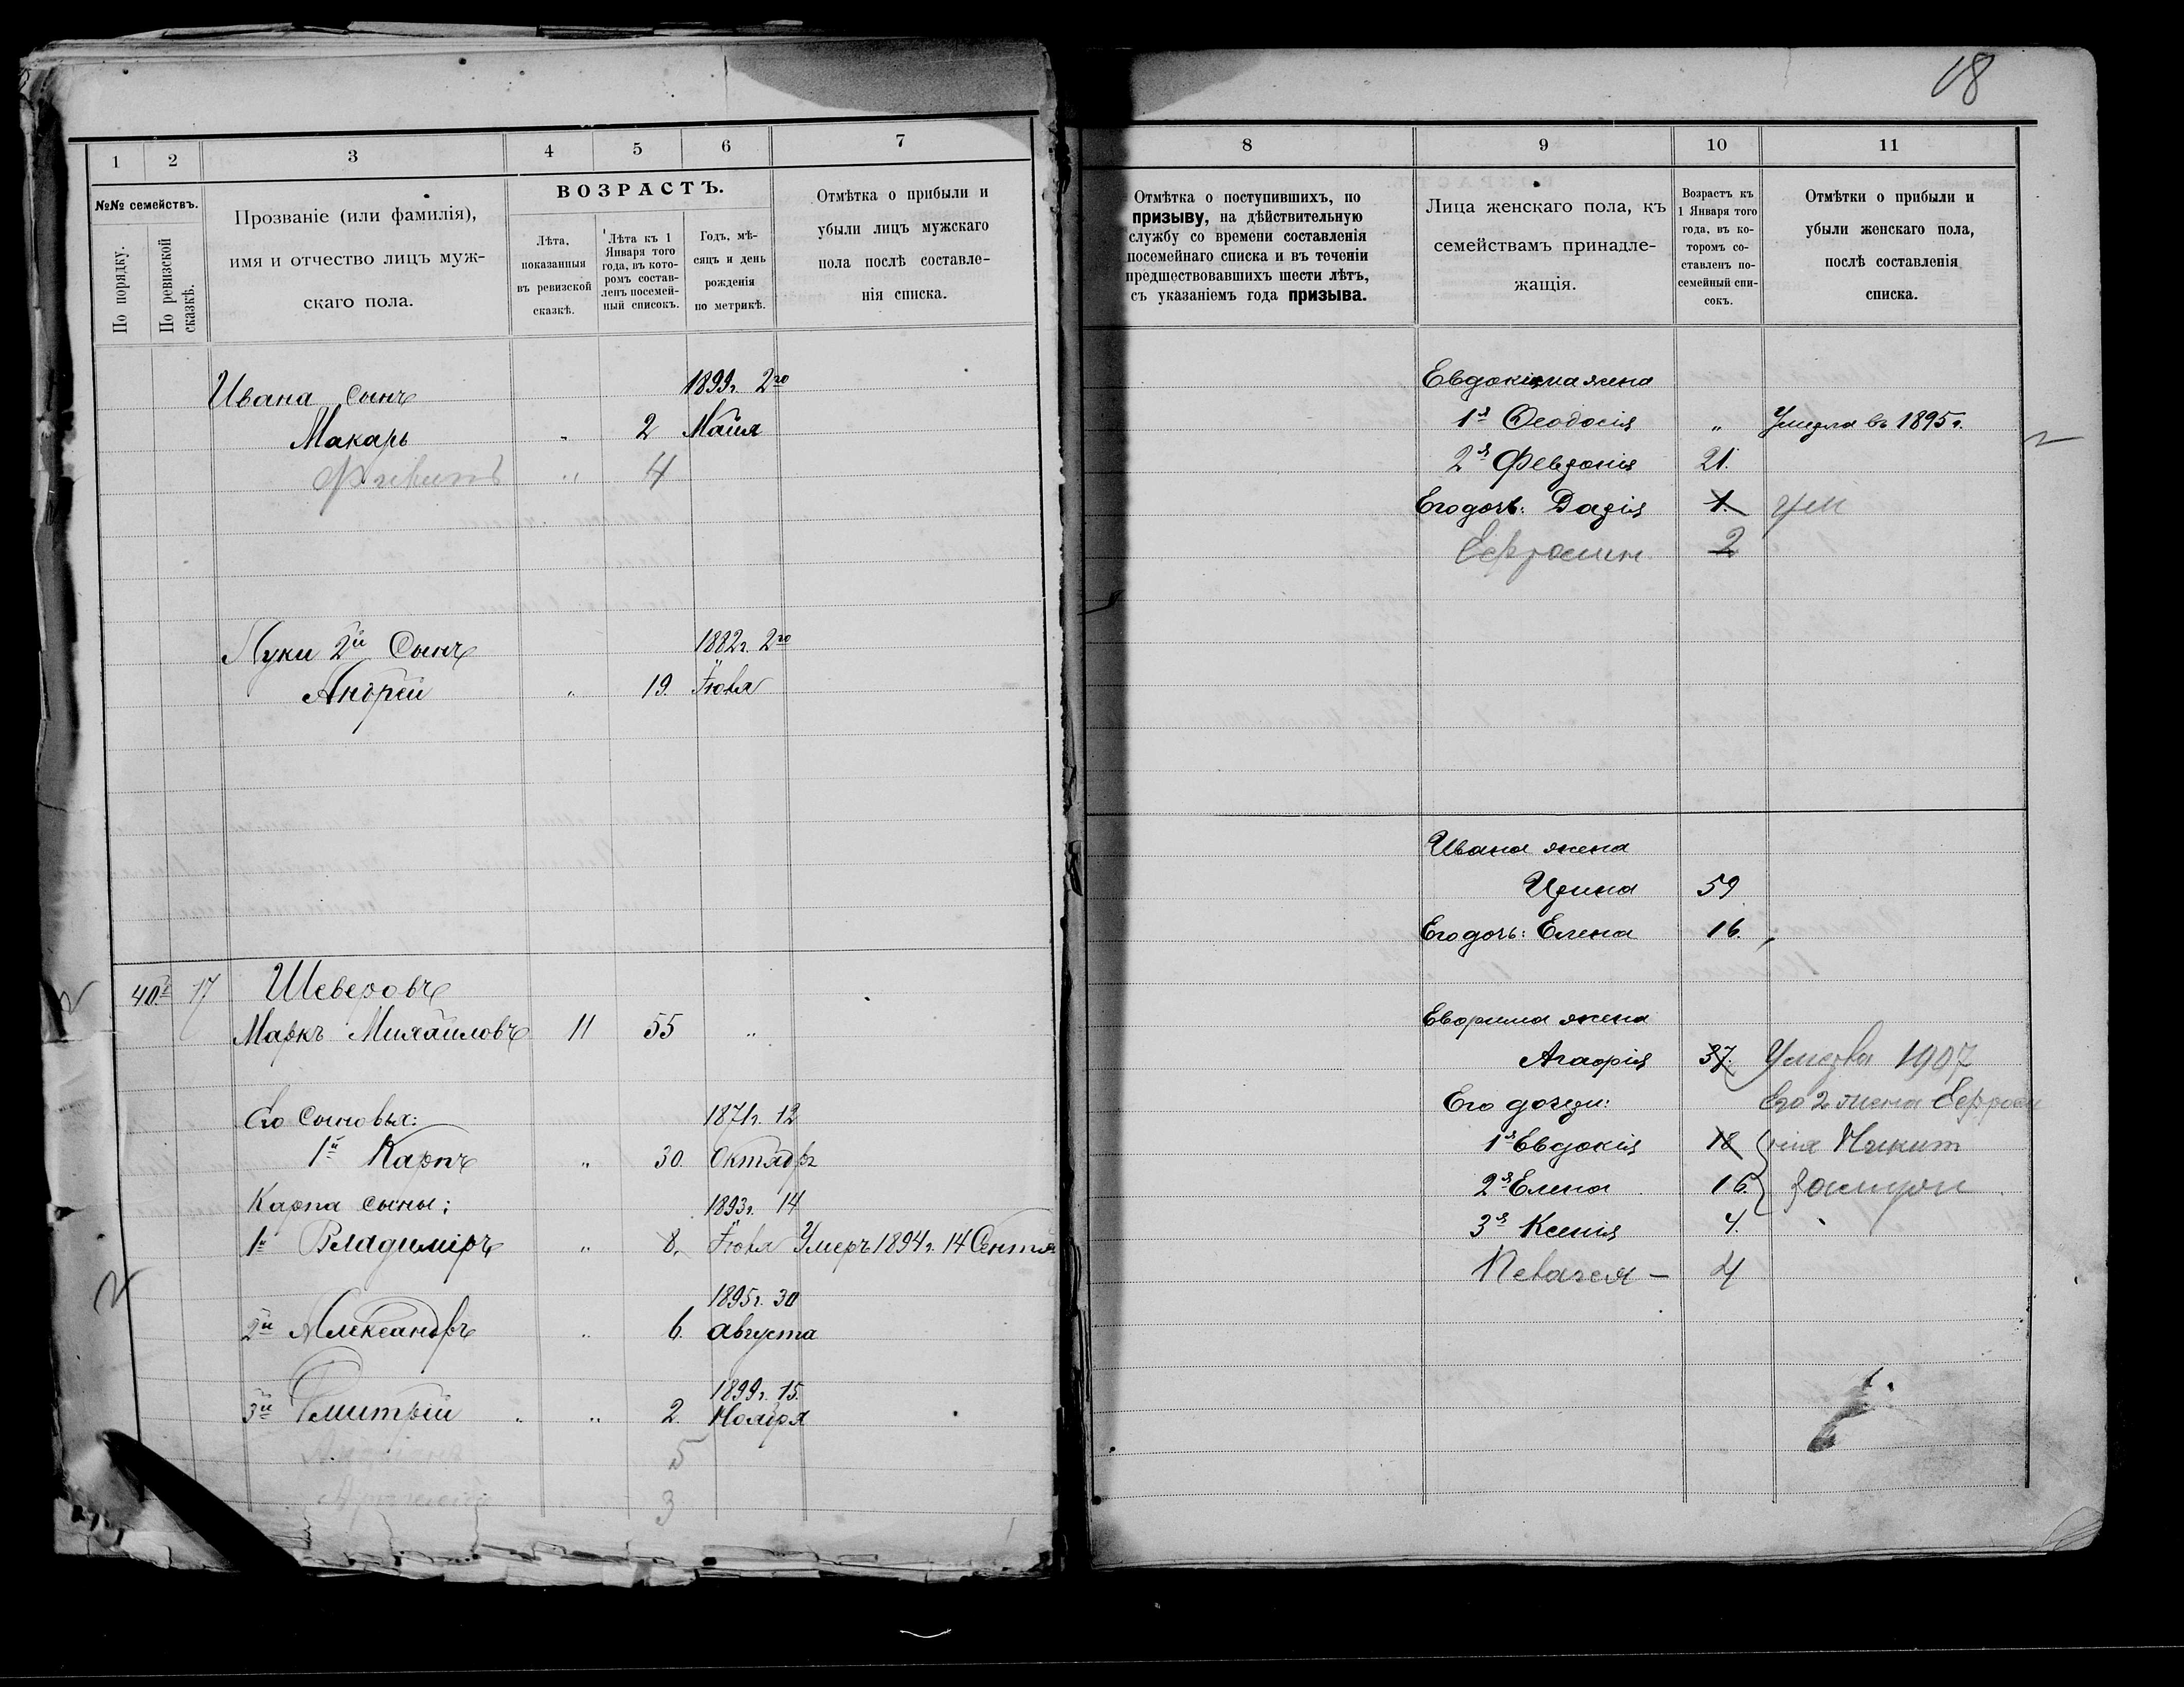 18
1
2
3
4
5
6
7
№№ семействъ.
По порядку.
По ревизской сказкѣ.
Прозваніе (или фамилія),
имя и отчество лицъ муж-
скаго пола.
ВОЗРАСТЪ.
Лѣта,
показанныя
въ ревизской
сказкѣ.
Лѣта къ 1
Января того
года, въ кото-
ромъ состав-
ленъ посемей-
ный списокъ.
Годъ, мѣ-
сяцъ и день
рожденія
по метрикѣ.
Отмѣтка о прибыли и
убыли лицъ мужскаго
пола послѣ составле-
нія списка.
Ивана сынъ 1899г. 2го
Макаръ " 2 Мая
" 4
Луки 2й Сынъ 1882г. 2го
Андрей " 19. Іюля
40й 17 Шеверовъ
Маркъ Михайловъ 11 55 "
Его Сыновья: 1871г. 12
1й Карпъ " 30. Октябр
Карпа сыны: 1893г. 14
1й Владиміръ " 8. Іюля Умеръ 1894г. 14 Сентя
1895г. 30
2й Александръ " 6. Августа
1899г. 15.
3й Дмитрій " " 2. Ноября
5
3
8
9
10
11
Отмѣтка о поступившихъ, по
призыву, на дѣйствительную
службу со времени составленія
посемейнаго списка и въ теченіи
предшествовавшихъ шести лѣтъ,
съ указаніемъ года призыва.
Лица женскаго пола, къ
семействамъ принадле-
жащія.
Возрастъ къ
1 Января того
года, въ ко-
торомъ со-
ставленъ по-
семейный спи-
сокъ.
Отмѣтки о прибыли и
убыли женскаго пола,
послѣ составленія
списка.
Евдокима жена
1я Ѳеодосія " Умерла въ 1895г.
2я Февронія 21.
Его дочь: Дарія 1. ум
Ефросин 2
Ивана жена
Ирина 59
Его дочь: Елена 16.
Ефрима жена
Агафія 37. Умерла 1907
Его дочери: Его 2 жена Ефрос
1я Евдокія 18 Никит
2я Елена 16. замуж
3я Ксенія 4.
Пелагея - 4